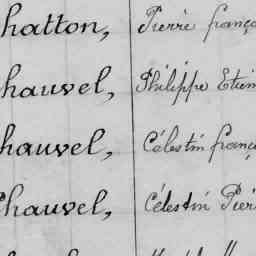 hatton, Pierre franç
hauvel, Philippe Etien
hauvel, Célestin franç
Chauvel, Célestin Pier